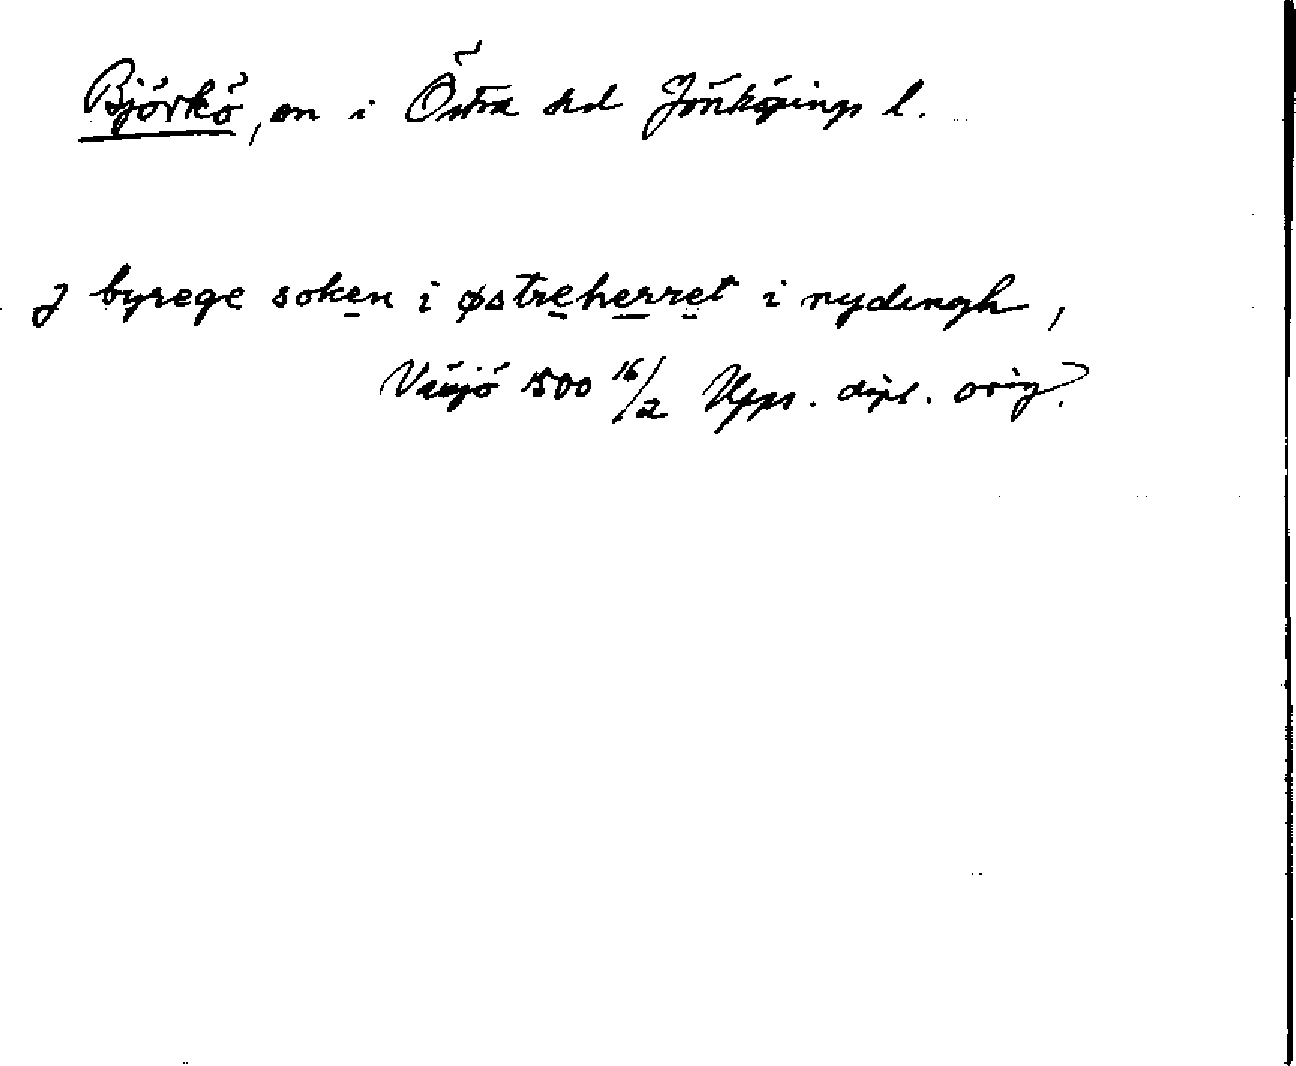 Björkö, sn i Östra hd Jönköpings l.
J byrege soken i østreherret i nydingh,
Växjö 1500 16/2 Upps. dipl. orig.